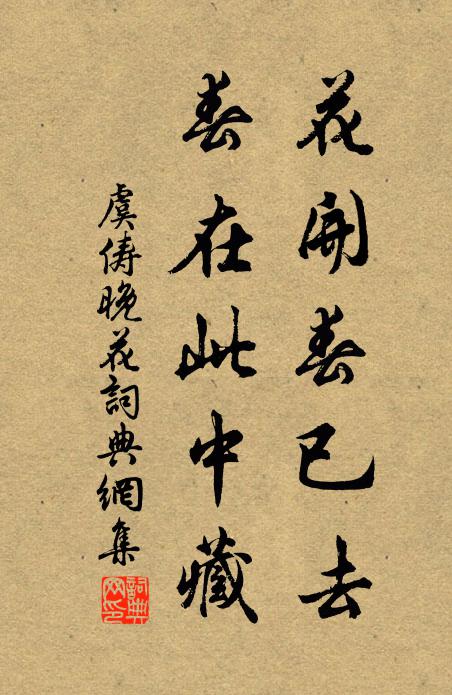 花開春已去
春在此中藏
虞儔晚花詞典網集
詞典网印